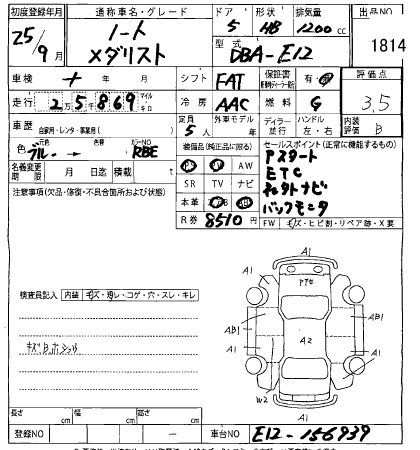 初度登録年月 通称車名・グレード ドア 形状 排気量 出品NO
25/9 ノート メダリスト 5 HB 1200cc 1814
型式 DBA-E12
車検 年 月 シフト FAT 保証書 有・ 評価点
走行 2万5千869 マイル キロ 冷房 AAC 燃料 G 3.5
車歴 自家用・レンタ・事業用( ) 定員 5人 外車モデル年 ディーラー 並行 ハンドル 左・右 内装評価 B
色 元色 ブルー → 色替 カラーNO RBE 装備品(純正品に限る) セールスポイント(正常に機能するもの)
名義変更期限 月 日迄 積載 t PS PW AW
SR TV ナビ
本革 エアB AB
R券 8510円
Pスタート
ETC
ナビ
バックモニタ
注意事項(欠品・修復・不具合箇所および状態)
FW キズ・ヒビ割・リペア跡・X要
検査員記入 内装 キズ・汚レ・コゲ・穴・スレ・キレ
A1
A1 A1
AB1 AB1
A1 A2 A1
W2
A1
長さ cm 幅 cm 高さ cm
登録NO ー 車台NO E12-156939